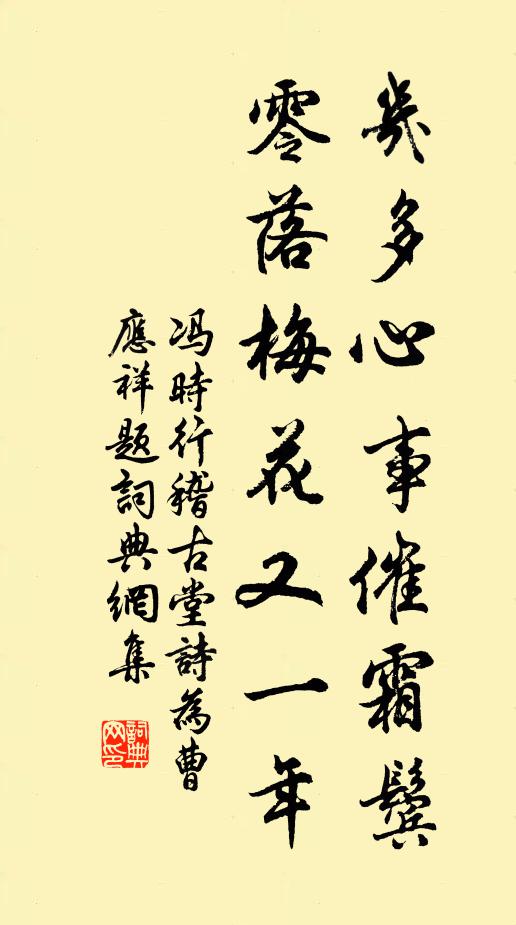 幾多心事催霜鬢
零落梅花又一年
冯時行稽古堂詩為曹
應祥题詞典網集
詞典
网印